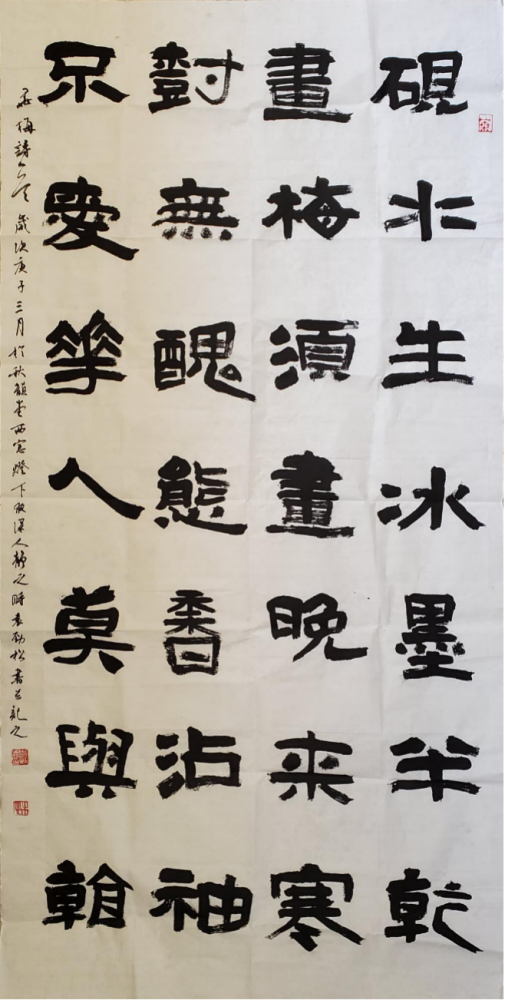 硯水生冰墨半乾
畫梅須畫晚來寒
對無醜態香沾袖
不愛華人莫與看
梅詩 歲次庚子三月於秋韻堂西窗燈下夜深人靜之時袁勁松書並記之